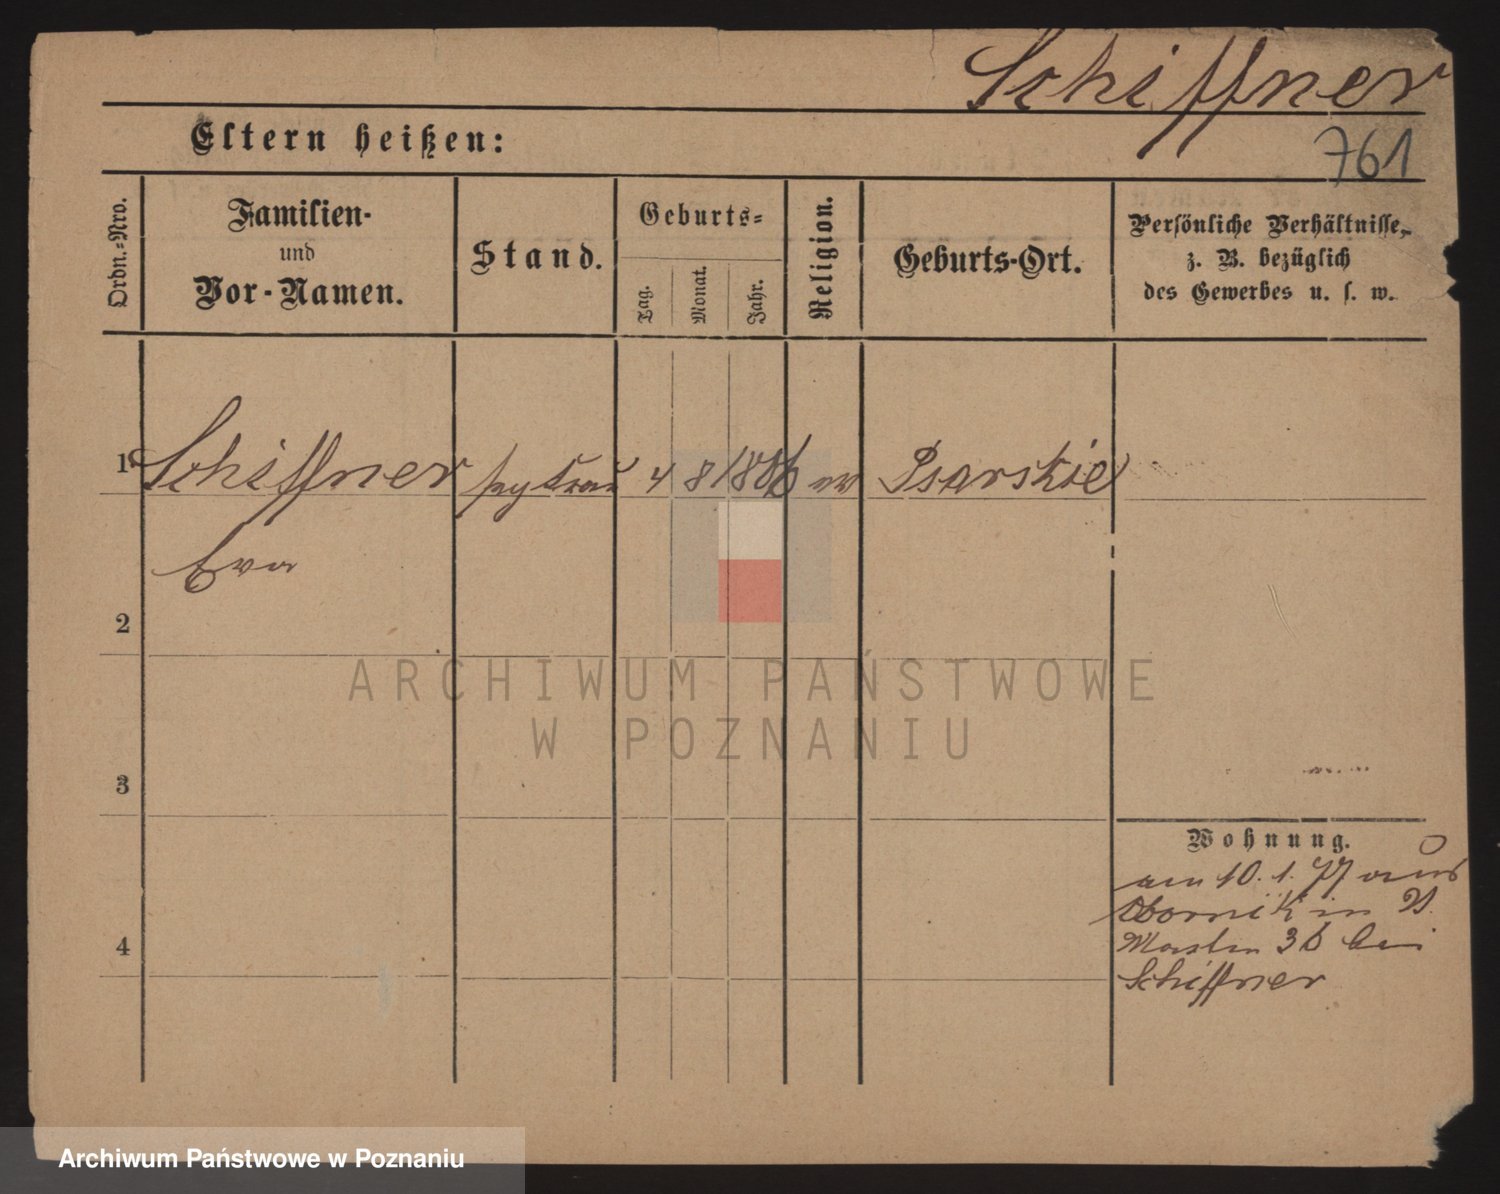 Schiffner
761
Eltern heißen:
Ordn.-Nro.
Familien-
und
Vor-Namen.
Stand.
Geburts=
Tag.
Monat.
Jahr.
Religion.
Geburts-Ort.
Persönliche Verhältnisse,
z. B. bezüglich
des Gewerbes u. s. w.
1 Schiffner 4 8 Psarskie
Eva
2
3
4
Wohnung.
am 10. 1. 77 aus
Obornik in St.
Martin 36 bei
Schiffner
ARCHIWUM PAŃSTWOWE
W POZNANIU
Archiwum Państwowe w Poznaniu